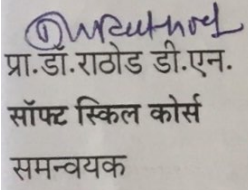 प्रा.डॉ.राठोड डी.एन.
सॉफ्ट स्किल कोर्स
समन्वयक